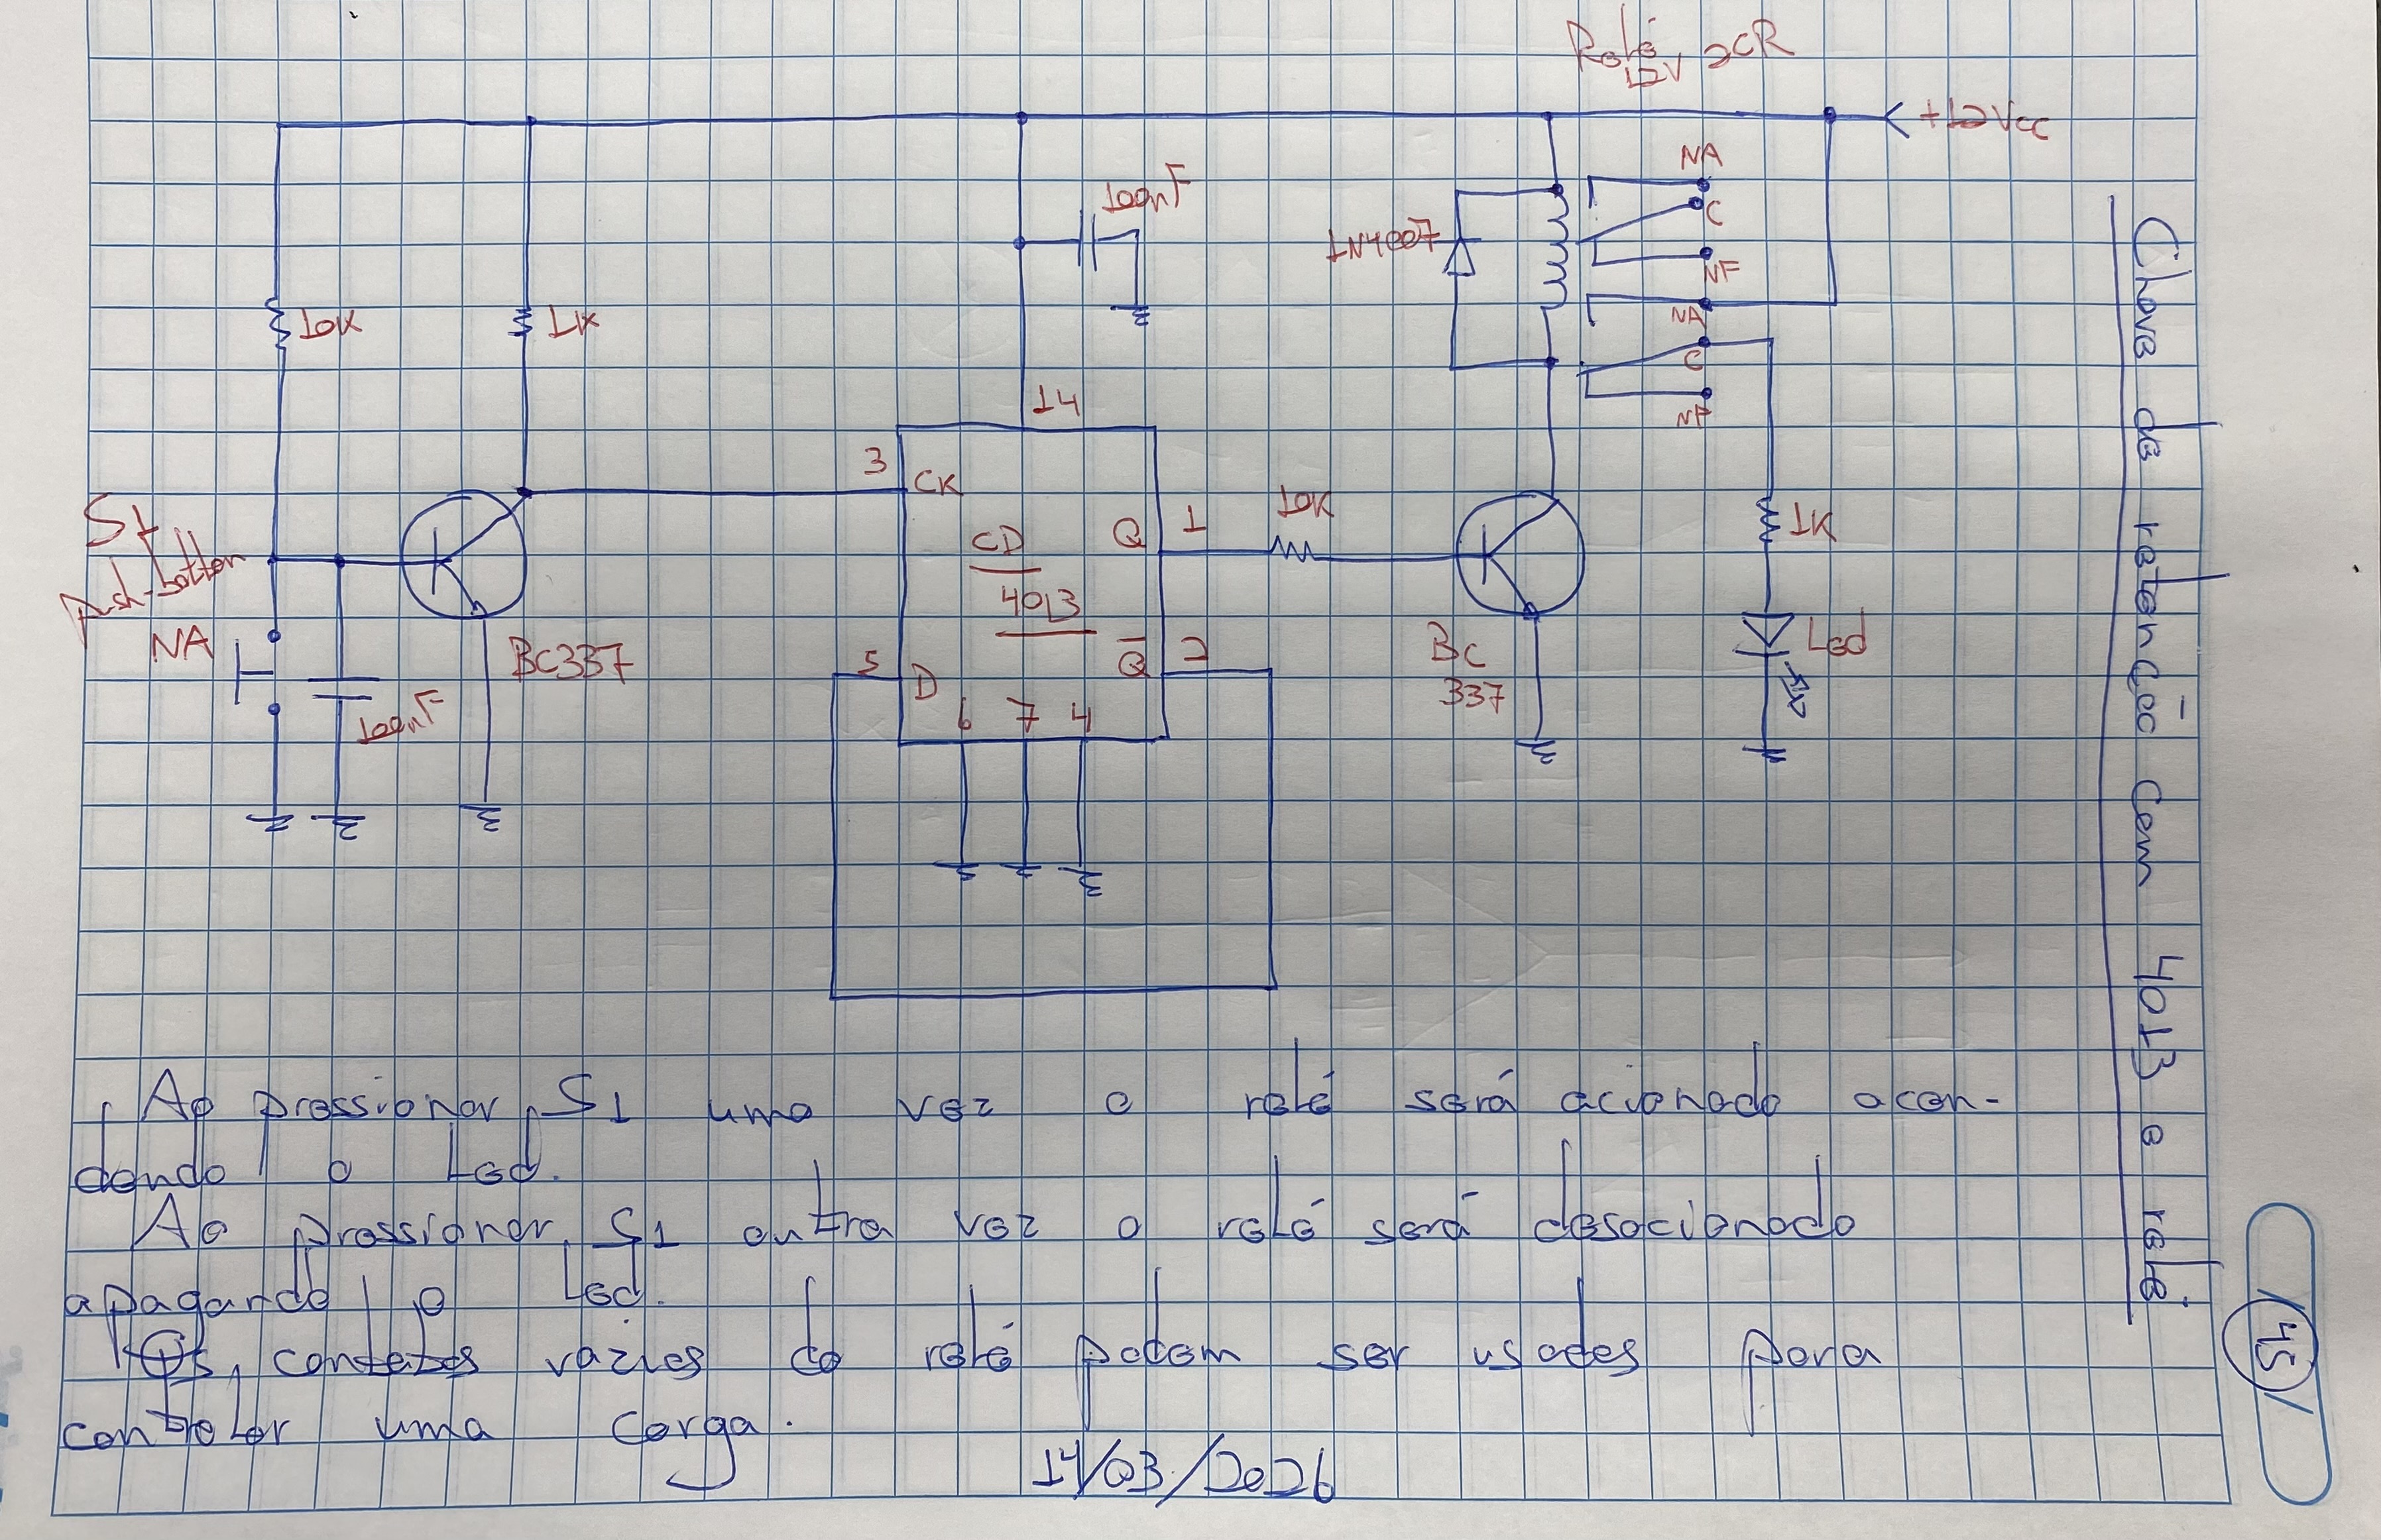 Relé 2CR
12V
+12Vcc
NA
100nF
C
1N4007
NF
10K
1K
NA
C
14
NF
3
CK
S1
10K
1
1K
CD
Q
push-botton
4013
NA
BC337
Q̅
2
Led
5
D
BC
337
6 7 4
100nF
Chave de retenção com 4013 e relé.
Ao pressionar S1 uma vez o relé será acionado acen-
dendo o Led.
Ao pressionar S1 outra vez o relé será desacionado
apagando o Led.
Os contatos vazios do relé podem ser usados para
controlar uma carga.
14/03/2026
45